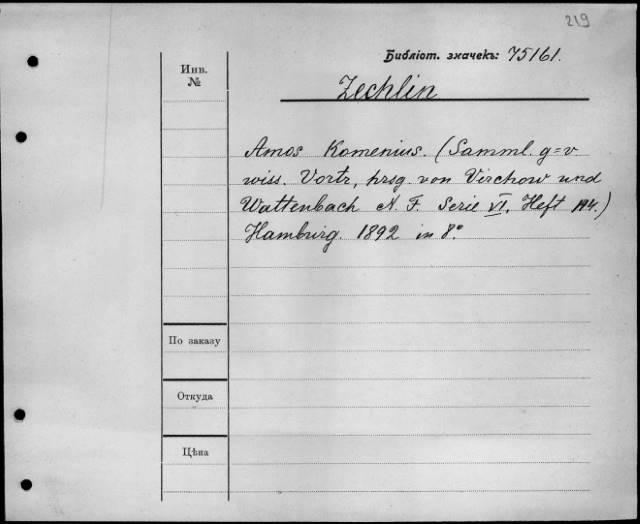 219
Библіот. значекъ: 75161.
Инв.
№
Zechlin
Amos Komenius. (Samml. g=v
wiss. Vortr, hrsg. von Virchow und
Wattenbach N. F. Serie VI, Heft 144.)
Hamburg. 1892 in 8°.
По заказу
Откуда
Цѣна